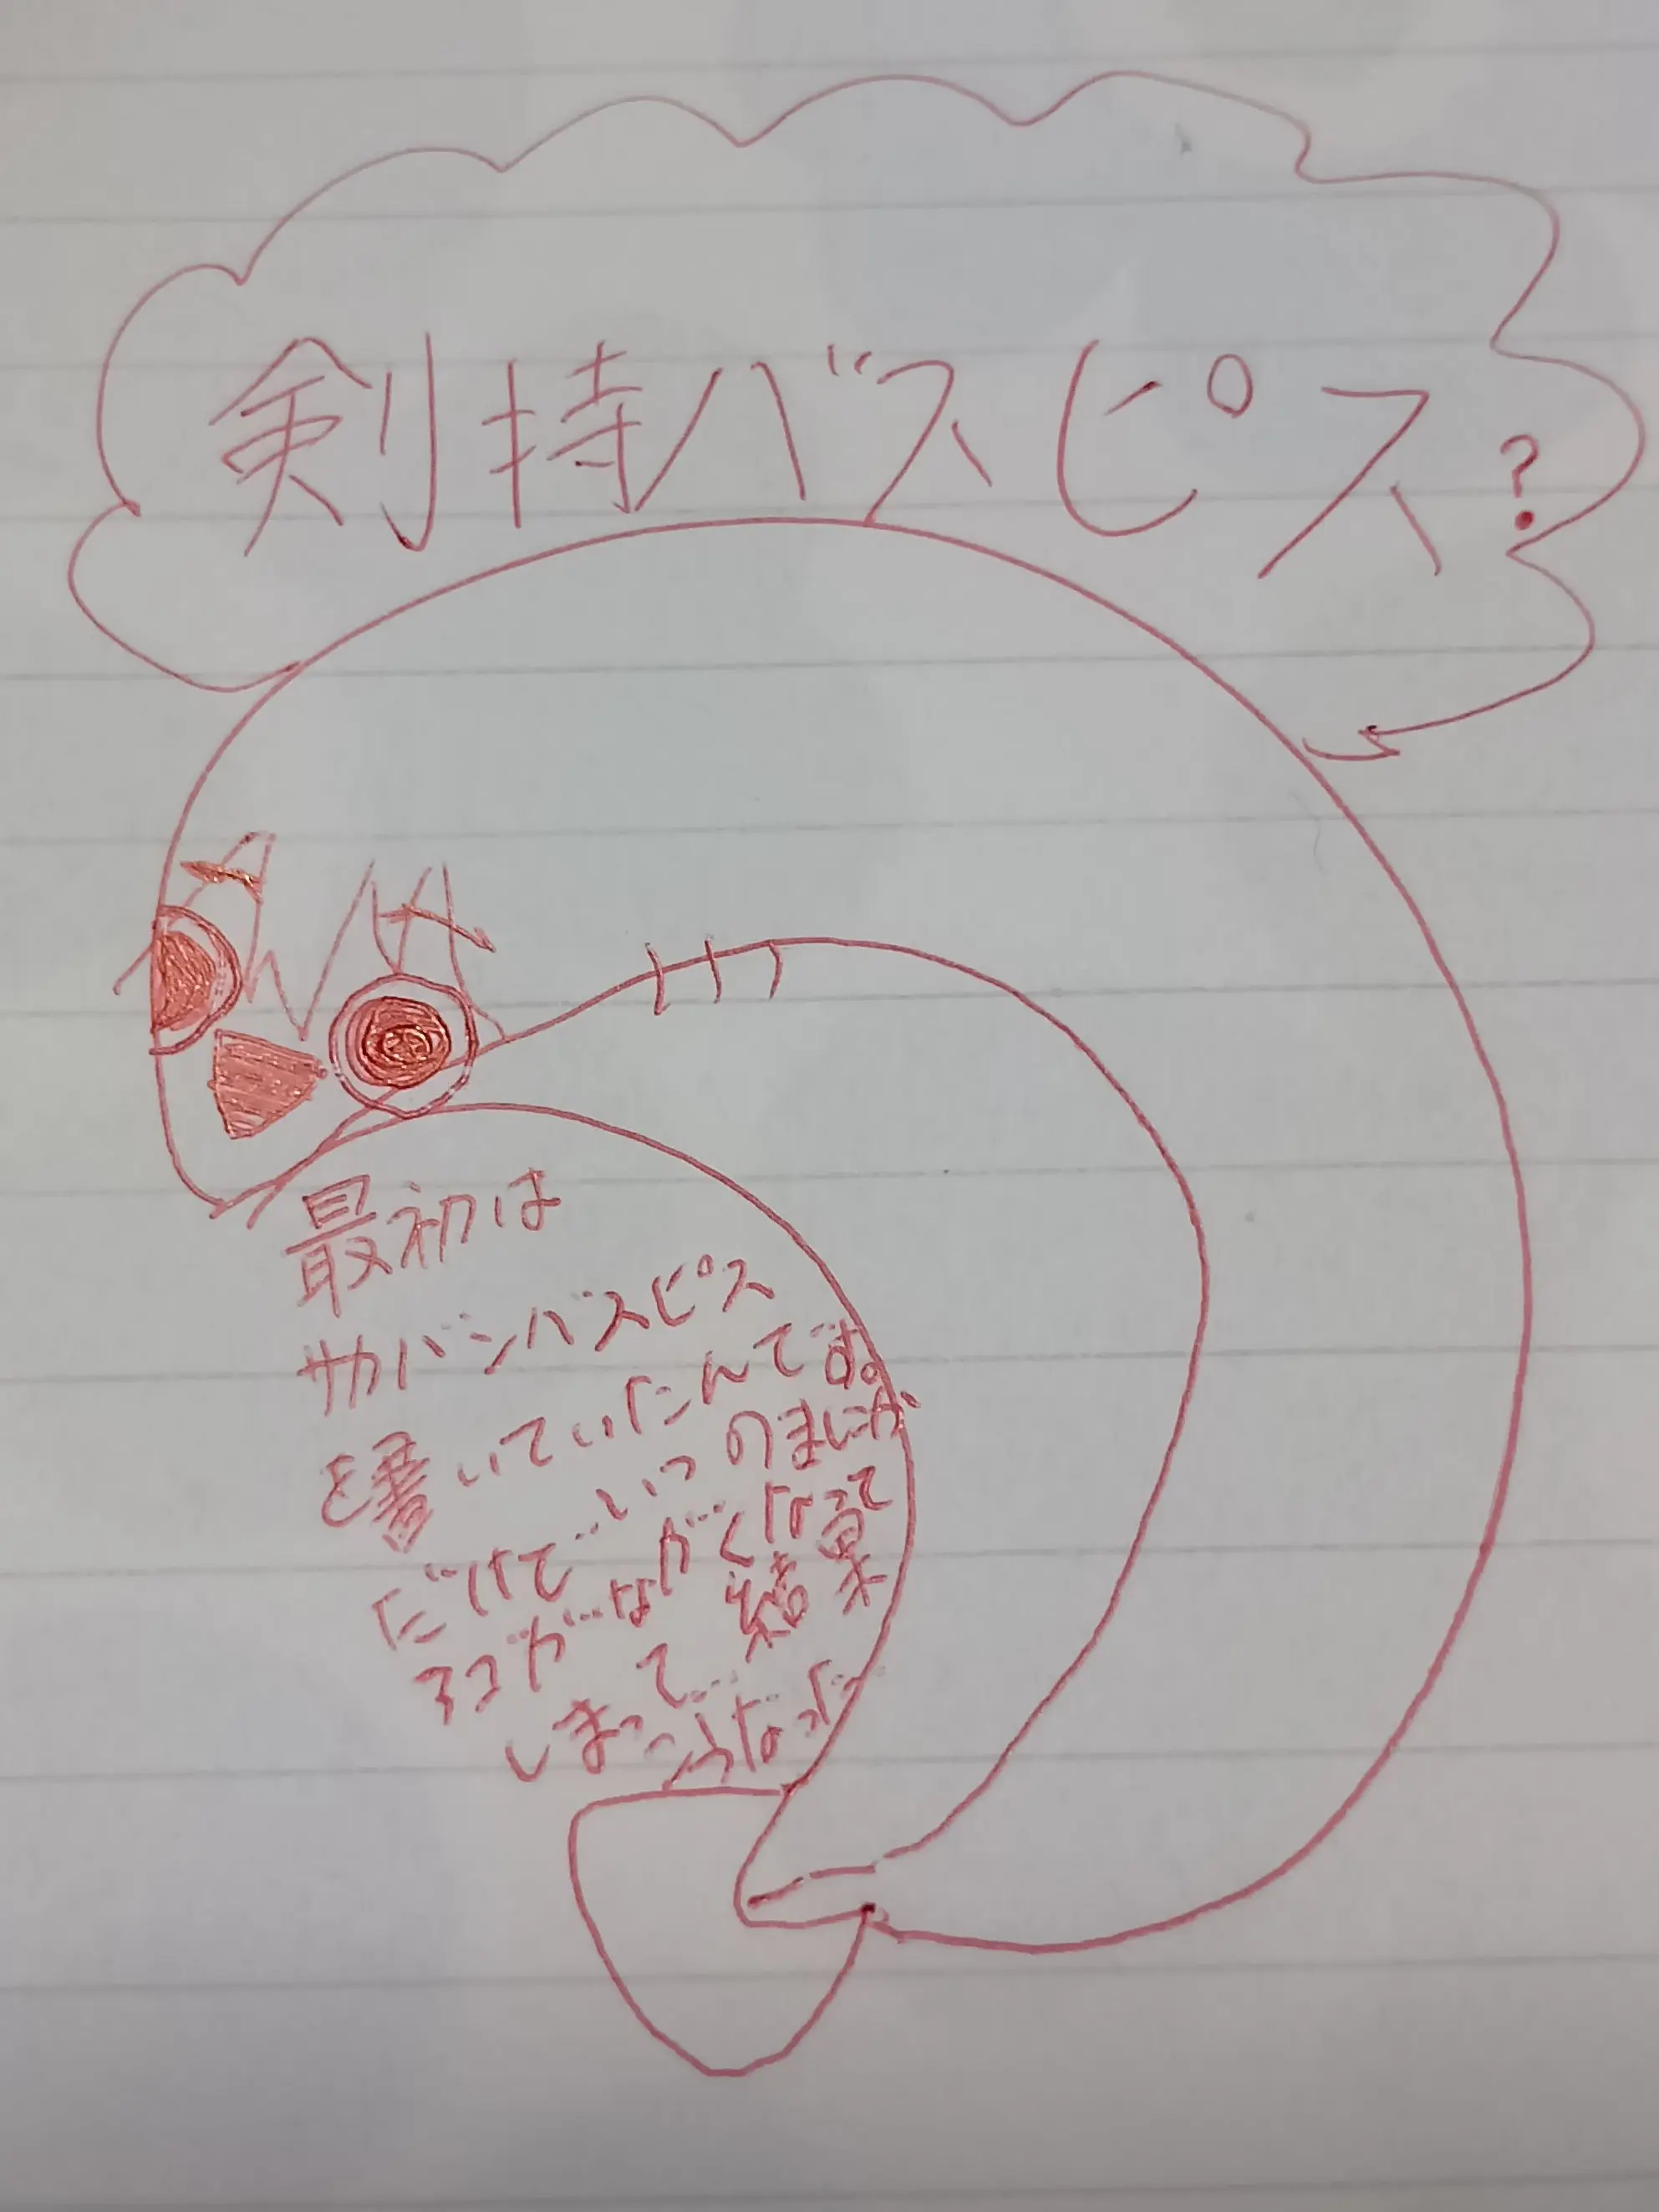 剣持バスピス?
最初は
サカバンバスピス
を書いていたんです。
だけど…いつのまにか
アゴが…ながくなって
しまって…結果
こうなった